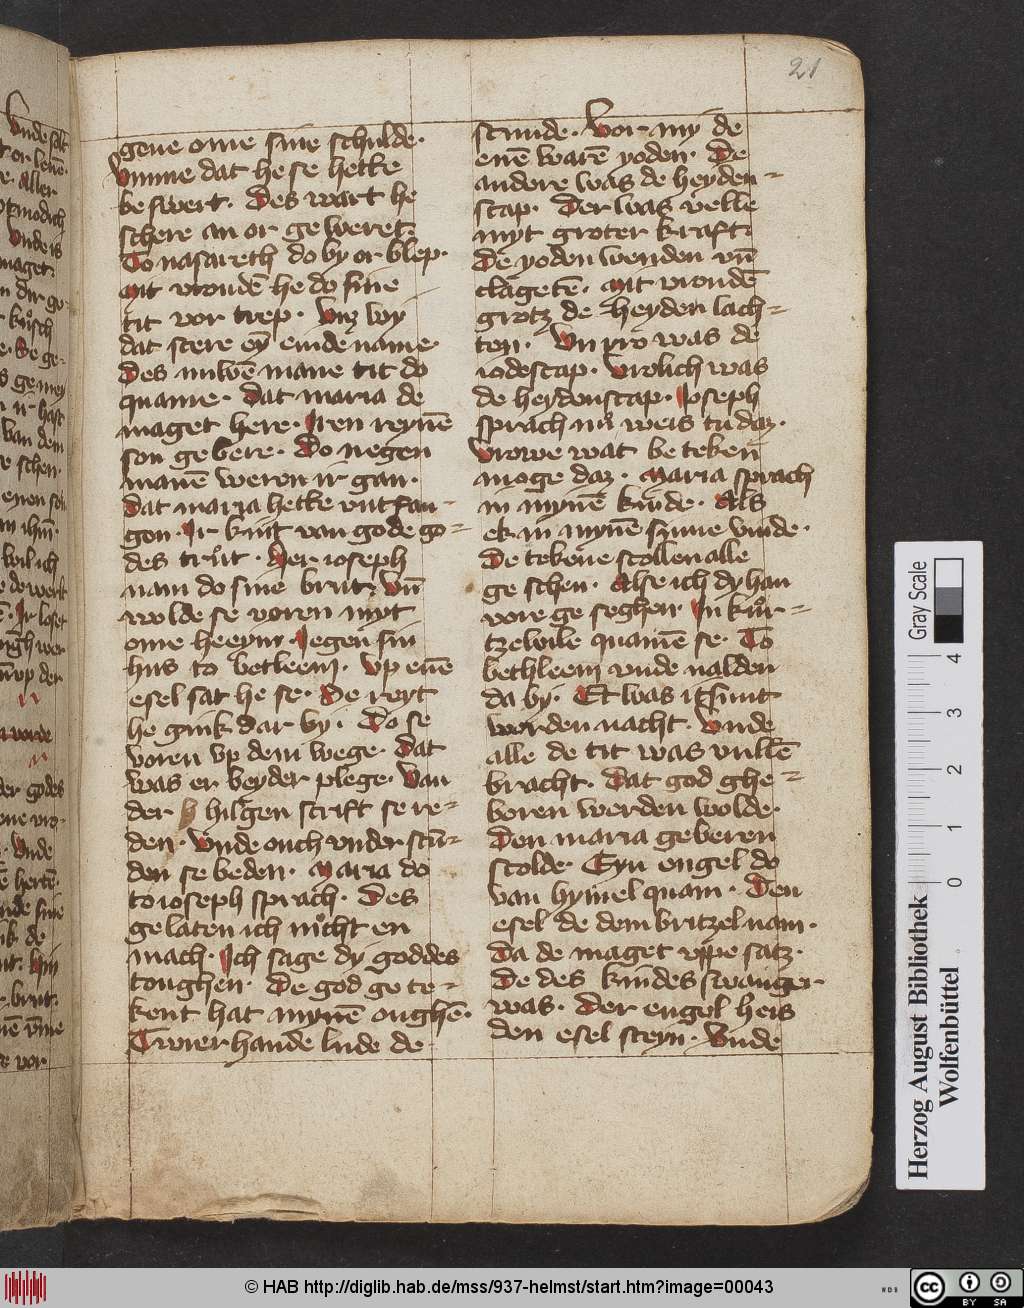 21
geue ome sine schulde·
Vmme dat he se hette
be swert· Des wart he
schere an or ge weret·
To nasareth do by or blep·
Mit vroudē he do sine
tit vor trep· Vnz wy
dat stere eỹ einde name·
Des niwē mane tit do
quame· Dat maria de
maget here· Iren reynē
son ge bere· Do negen
manē weren ir gan·
Dat maria hette vnt fan-
gen· Ir kint van gode go-
des trut· Her ioseph
nam do sine brut· Vn̄
wolde se voren myt
ome heeym· Iegen sin
hus to betleem· Vp enē
esel sat he se· De reyt
he gink dar by· Do se
voren vp dem wege· Dat
was er beyder plege· Van
der h hilgen scrift se re-
den· Vnde ouch vnder stū-
den se beden· Maria do
to ioseph sprach· Des
gelaten ich nicht en
mach· Ich sage dy goddes
toughen· De god ge te-
kent hat mynē oughē·
Twier hande lude de
stunde· Vor my de
enē warē yoden· De
andere was de heyden-
scap· Der was velle
myt groter kraft·
De yoden wenden vn̄
clagetē· Mit vroudē
grotz de heyden lach-
ten· Vn vro was de
iodescap· Vrolich was
de heydenscap· Ioseph
sprach nů weis tu daz·
Vrowe wat be teken
moge daz· Maria sprach
in mynē kinde· Als
ek in mynē sinne vinde·
De tekene scollen alle
ge schen· Alse ich dy han
vore ge seghen· In kůr-
tzewile quamē se· To
bethleem vnde nalden
da by· Et was it sunt
worden nacht· Vnde
alle de tit was vullē
bracht· Dat god ghe-
boren werden wolde·
Den maria geberen
scolde· Eyn engel do
van hymel quam· Den
esel de dem britzel nam·
Da de maget vppe satz·
De des kindes swanger
was· Der engel heis
den esel steyn· Vnde
Gray Scale
4
3
2
1
0
Herzog August Bibliothek
Wolfenbüttel
© HAB http://diglib.hab.de/mss/937-helmst/start.htm?image=00043
WDB
cc BY SA